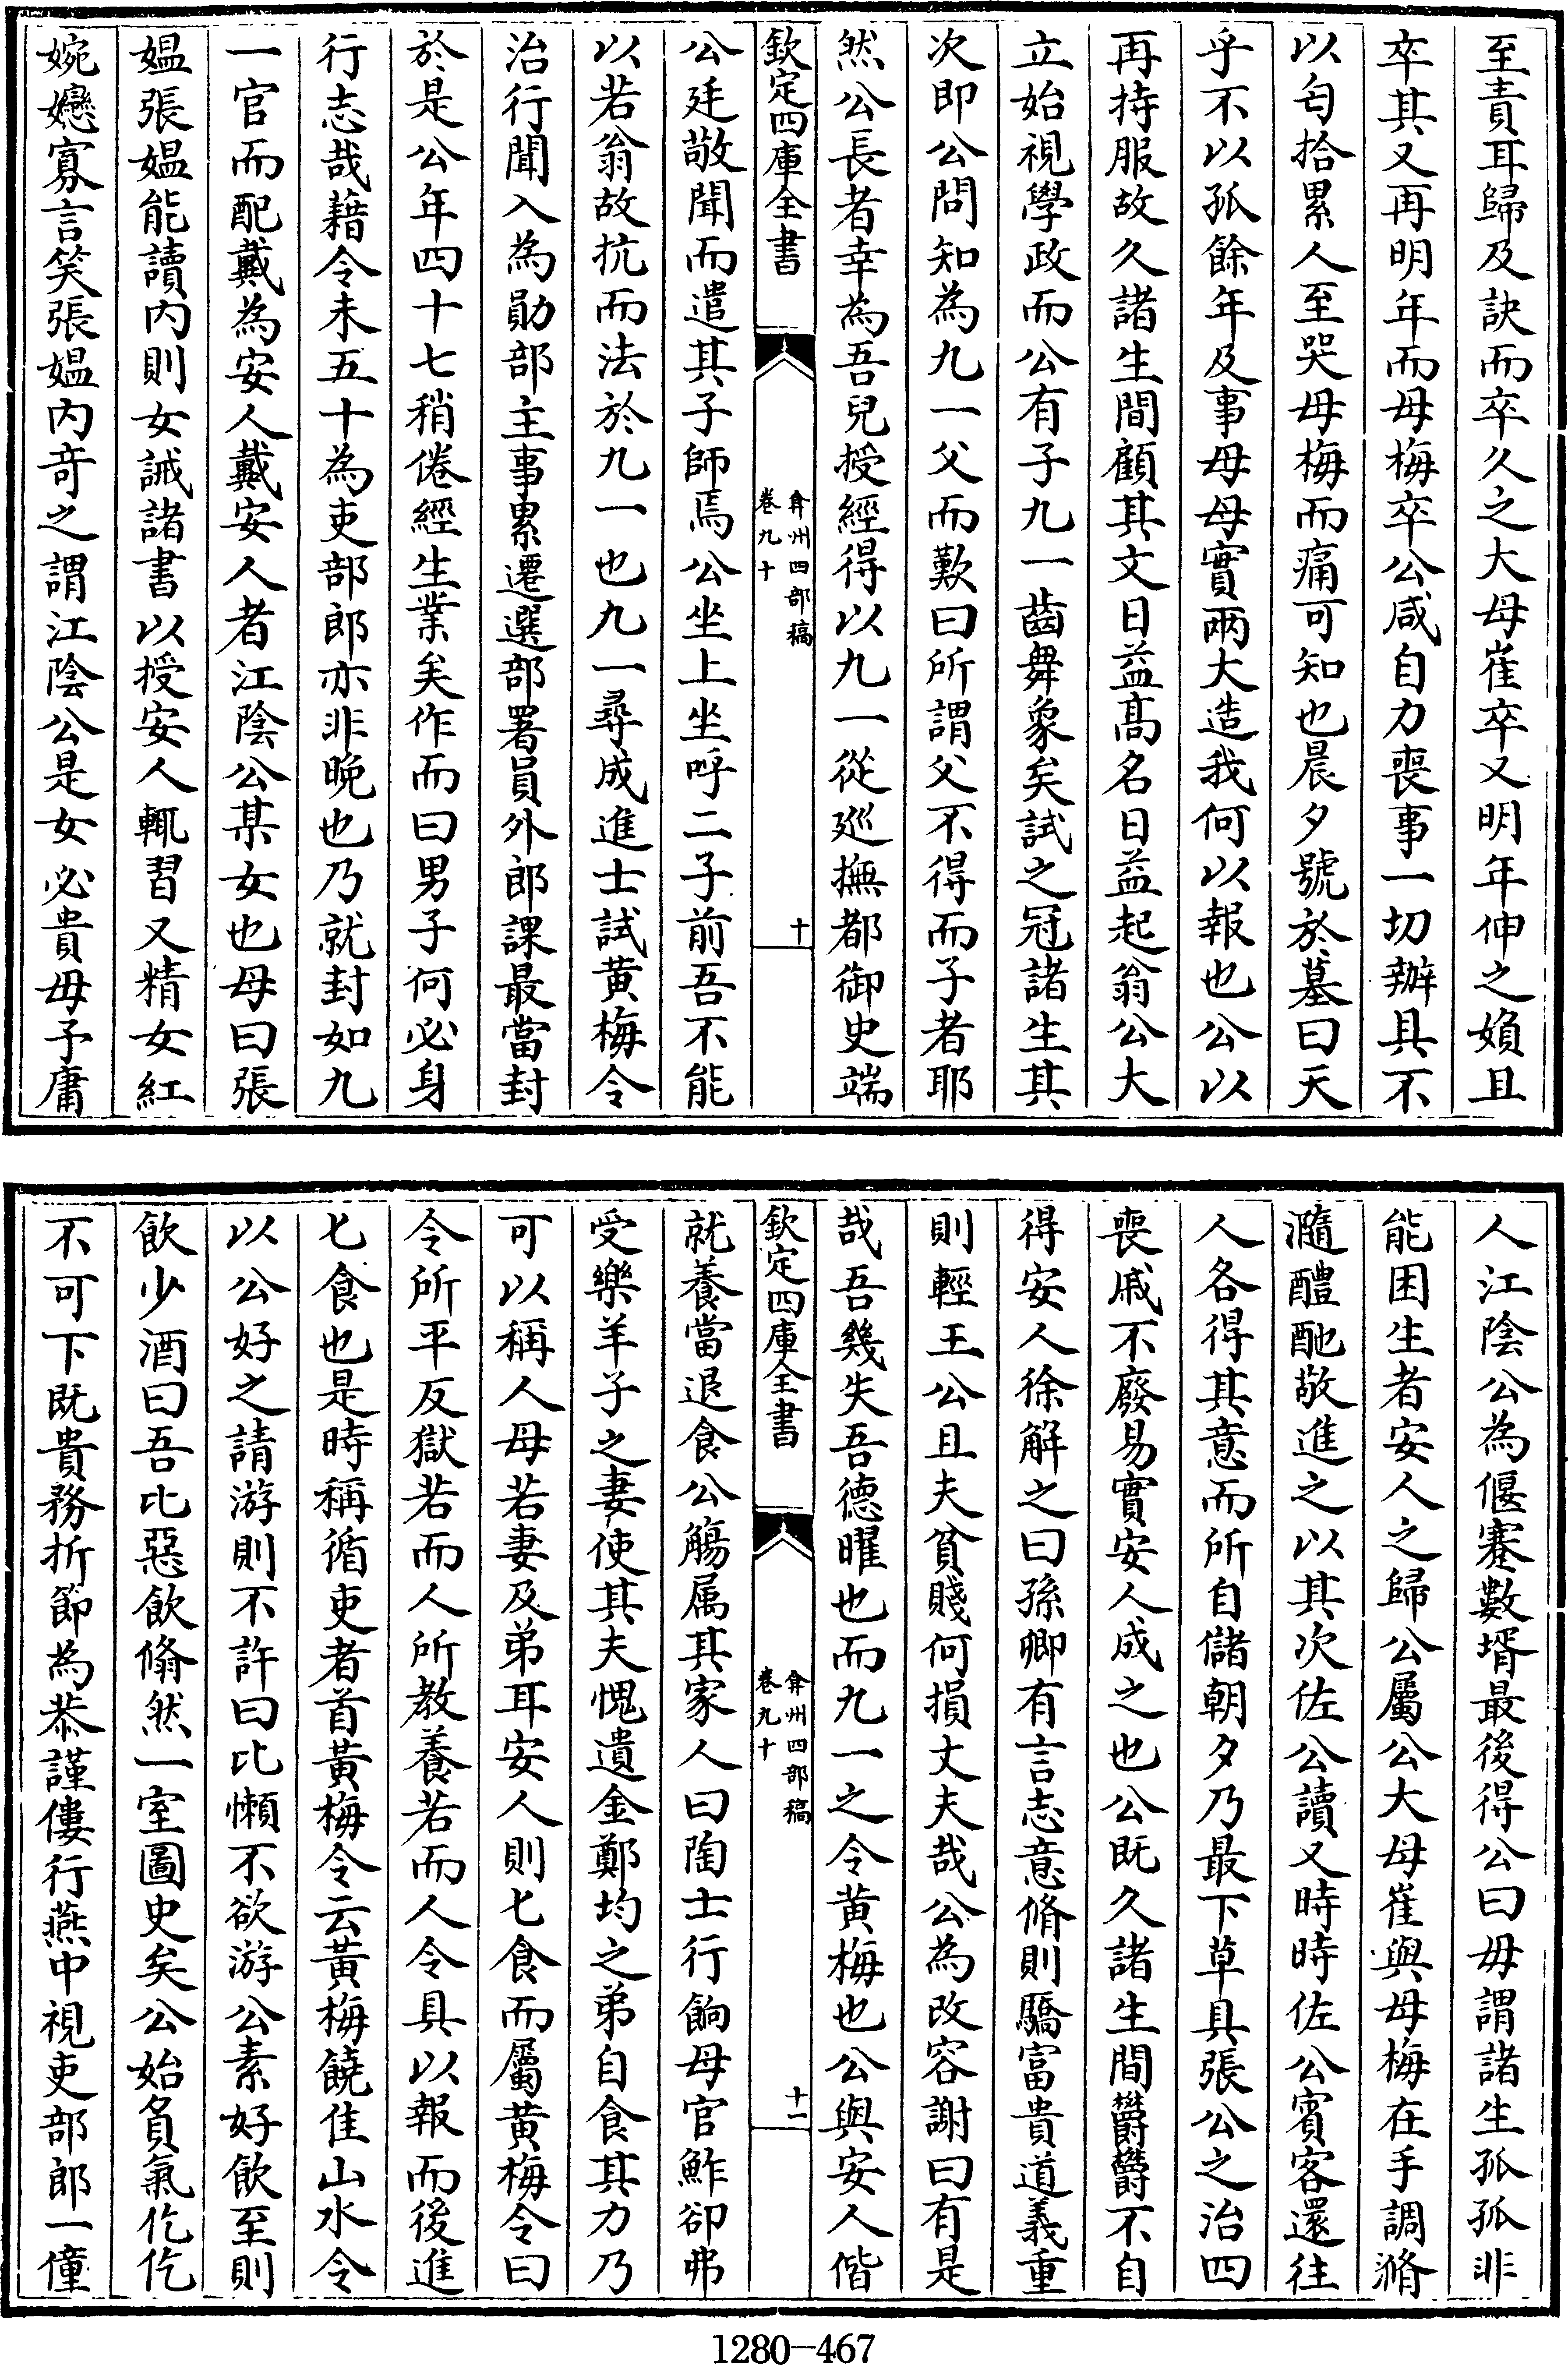 至責耳歸及訣而卒久之大母崔卒又明年伸之殞且
卒其又再明年而母梅卒公咸自力喪事一切辦具不
以匄拾累人至哭母梅而痛可知也晨夕號於墓曰天
乎不以孤餘年及事母母實兩大造我何以報也公以
再持服故久諸生間顧其文日益髙名日益起翁公大
立始視學政而公有子九一齒舞象矣試之冠諸生其
次即公問知為九一父而歎曰所謂父不得而子者耶
然公長者幸為吾兒授經得以九一從巡撫都御史端
欽定四庫全書
弇州四部稿
卷九十
十
公廷敬聞而遣其子師焉公坐上坐呼二子前吾不能
以若翁故抗而法於九一也九一尋成進士試黃梅令
治行聞入為勛部主事累遷選部署員外郎課最當封
於是公年四十七稍倦經生業矣作而曰男子何必身
行志哉藉令未五十為吏部郎亦非晩也乃就封如九
一官而配戴為安人戴安人者江陰公某女也母曰張
媼張媼能讀內則女誡諸書以授安人輒習又精女紅
婉孌寡言笑張媼内竒之謂江陰公是女必貴毋予庸
人江陰公為偃蹇數壻最後得公曰毋謂諸生孤孤非
能困生者安人之歸公屬公大母崔與母梅在手調滫
瀡醴酏敬進之以其次佐公讀又時時佐公賓客還往
人各得其意而所自儲朝夕乃最下草具張公之治四
喪戚不廢易實安人成之也公既久諸生間欝欝不自
得安人徐解之曰孫卿有言志意脩則驕富貴道義重
則輕王公且夫貧賤何損丈夫哉公為改容謝曰有是
哉吾幾失吾德曜也而九一之令黄梅也公與安人偕
欽定四庫全書
弇州四部稿
卷九十
十一
就養當退食公觴属其家人曰陶士行餉母官鮓卻弗
受樂羊子之妻使其夫愧遺金鄭均之弟自食其力乃
可以稱人母若妻及弟耳安人則匕食而屬黄梅令曰
令所平反獄若而人所教養若而人令具以報而後進
匕食也是時稱循吏者首黄梅令云黄梅饒佳山水令
以公好之請游則不許曰比懶不欲游公素好飲至則
飲少酒曰吾比惡飲翛然一室圖史矣公始負氣仡仡
不可下既貴務折節為恭謹僂行燕中視吏部郎一僮
1280-467